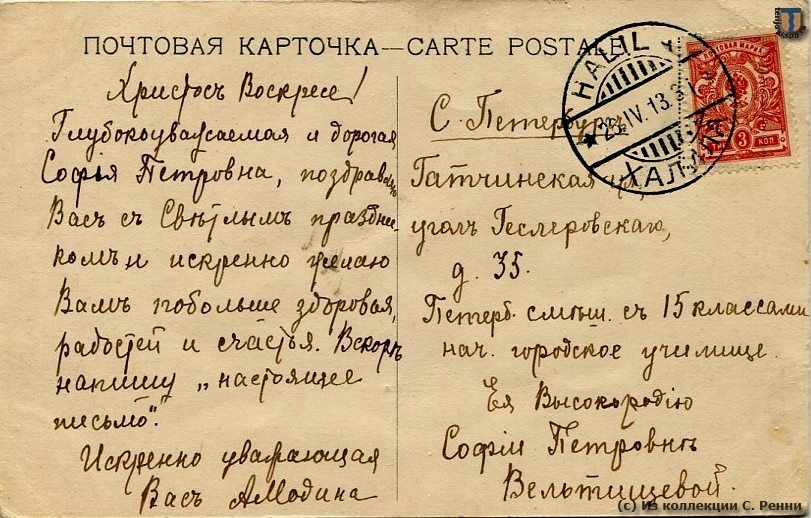 ПОЧТОВАЯ КАРТОЧКА—CARTE POSTALE
Христосъ Воскресе!
Глубокоуважаемая и дорогая
Софія Петровна, поздравляю
Васъ съ Свѣтлымъ праздни-
комъ и искренно желаю
Вамъ побольше здоровья,
радостей и счастья. Вскорѣ
напишу „настоящее
письмо".
Искренно уважающая
Васъ АМодина
HALILA
25.IV.13
ХАЛИЛА
ПОЧТОВАЯ МАРКА
3 КОП
С. Петербургъ
Гатчинская ул,
уголъ Геслеровскаго,
д. 35.
Петерб. смѣш. съ 15 классами
нач. городское училище.
Ея Высокородію
Софіи Петровнѣ
Вельтищевой.
(c) Из коллекции С. Ренни